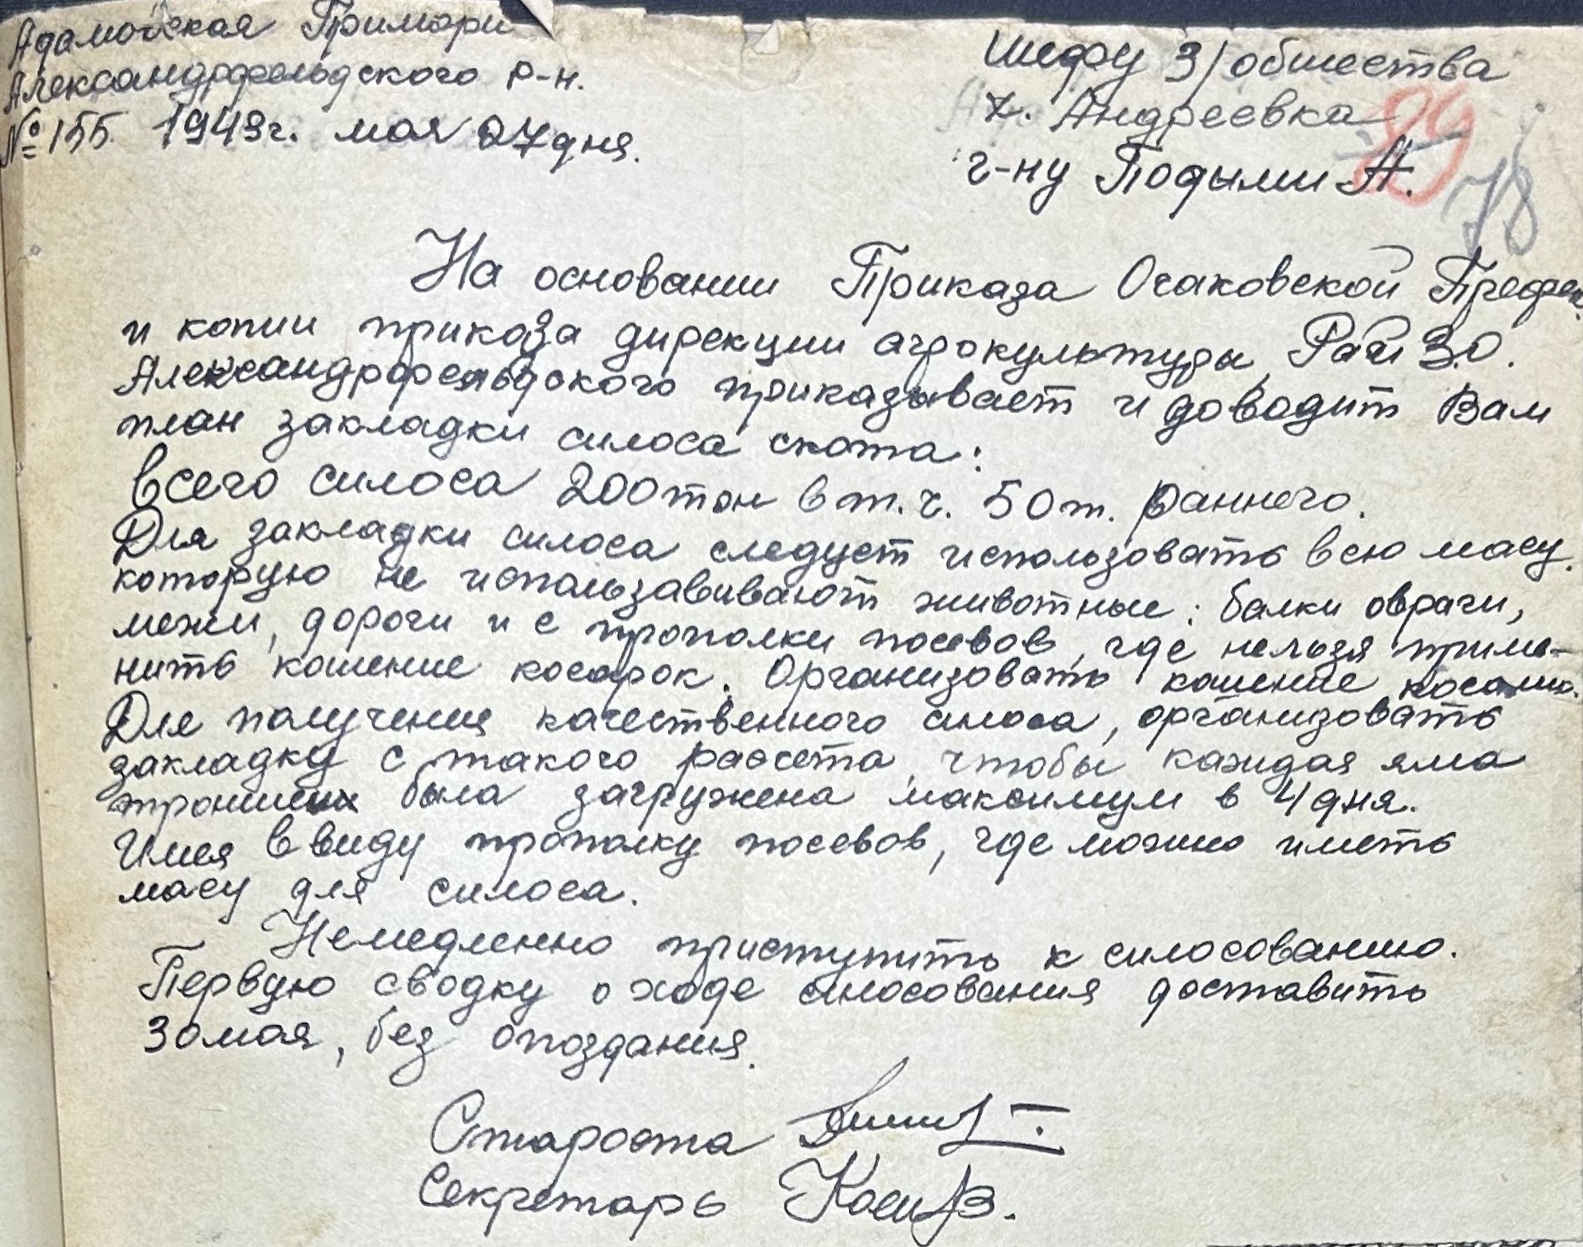 Адамовская Примари
Александрфельдского р-н.
№ 155 1943г. мая 27 дня.
Шефу З/общества
х. Андреевка
г-ну Подыми А.
89
78
На основании Приказа Очаковской Префек
и копии приказа дирекции агрокультуры Рай З.О.
Александрфельдского приказывает и доводит Вам
план закладки силоса скота:
Всего силоса 200 тон в т.ч. 50 т. раннего.
Для закладки силоса следует использовать всю масу.
которую не использавивают животные: балки овраги,
межи, дороги и с прополки посевов, где нельзя приме-
нить кошение косарок. Организовать кошение косами.
Для получения качественного силоса, организовать
закладку с такого расчета, чтобы каждая яма
была загружена максимум в 4 дня.
Имея в виду прополку посевов, где можно иметь
масу для силоса.
Немедленно приступить к силосованию.
Первую сводку о ходе силосования доставить
30 мая, без опоздания.
Староста
Секретарь